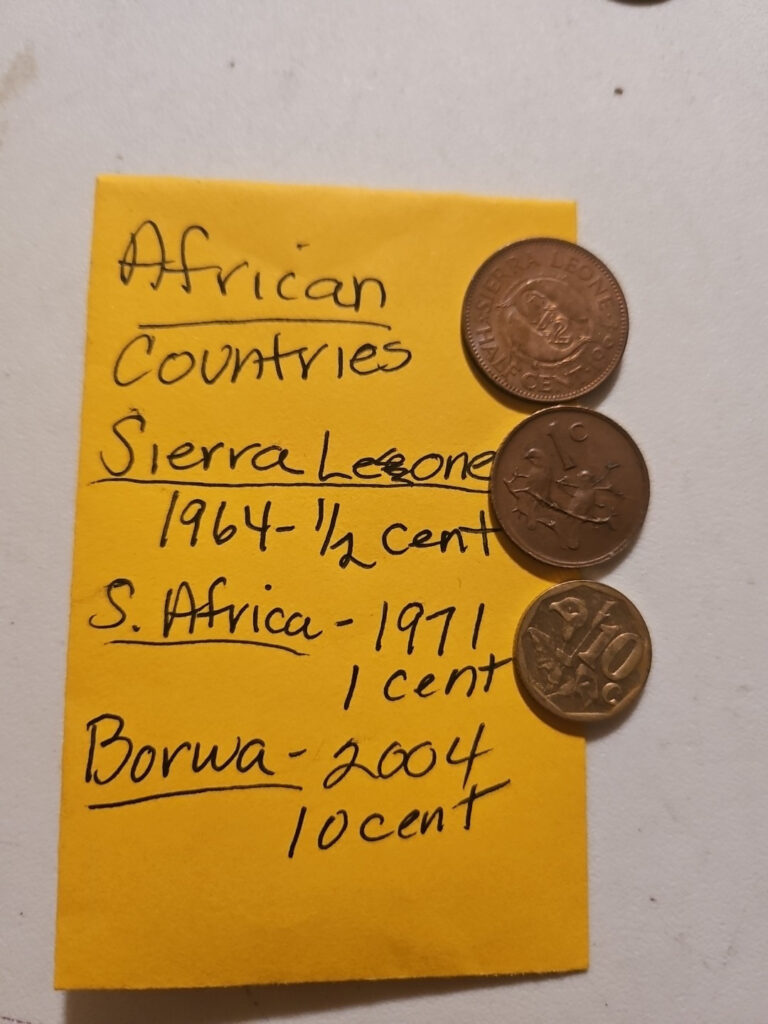 African
Countries
Sierra Leone
1964-1/2 cent
S. Africa - 1971
1 cent
Borwa - 2004
10 cent
SIERRA LEONE 1964
HALF CENT
1c
10
c